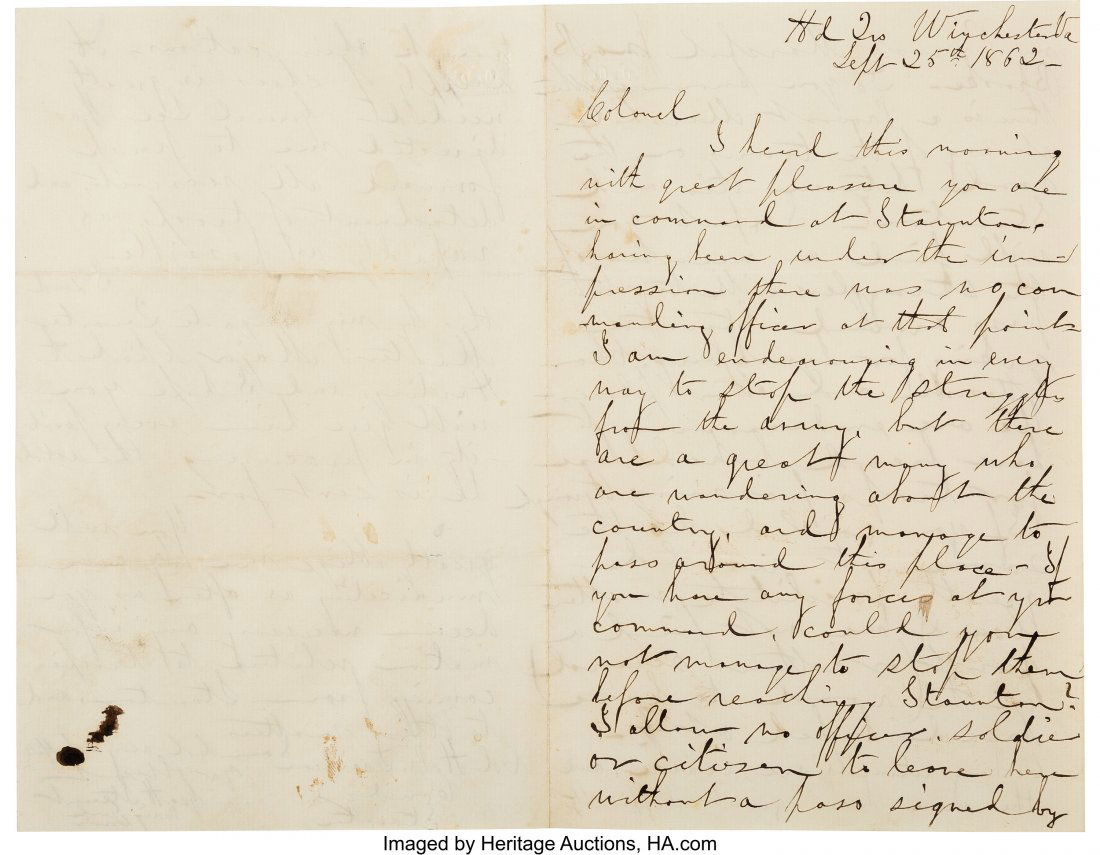 Hd Qrs Winchester Va
Sept 25th 1862 –
Colonel
I heard this morning
with great pleasure you are
in command at Staunton,
having been under the im-
pression there was no com
manding officer at that point
I am endeavouring in every
way to stop the stragglers
from the army, but there
are a great many who
are wandering about the
country, and manage to
pass around this place – If
you have any forces at yr
command, could you
not manage to stop them
before reaching Staunton?
I allow no officer, soldier
or citizen to leave here
without a pass signed by
Imaged by Heritage Auctions, HA.com